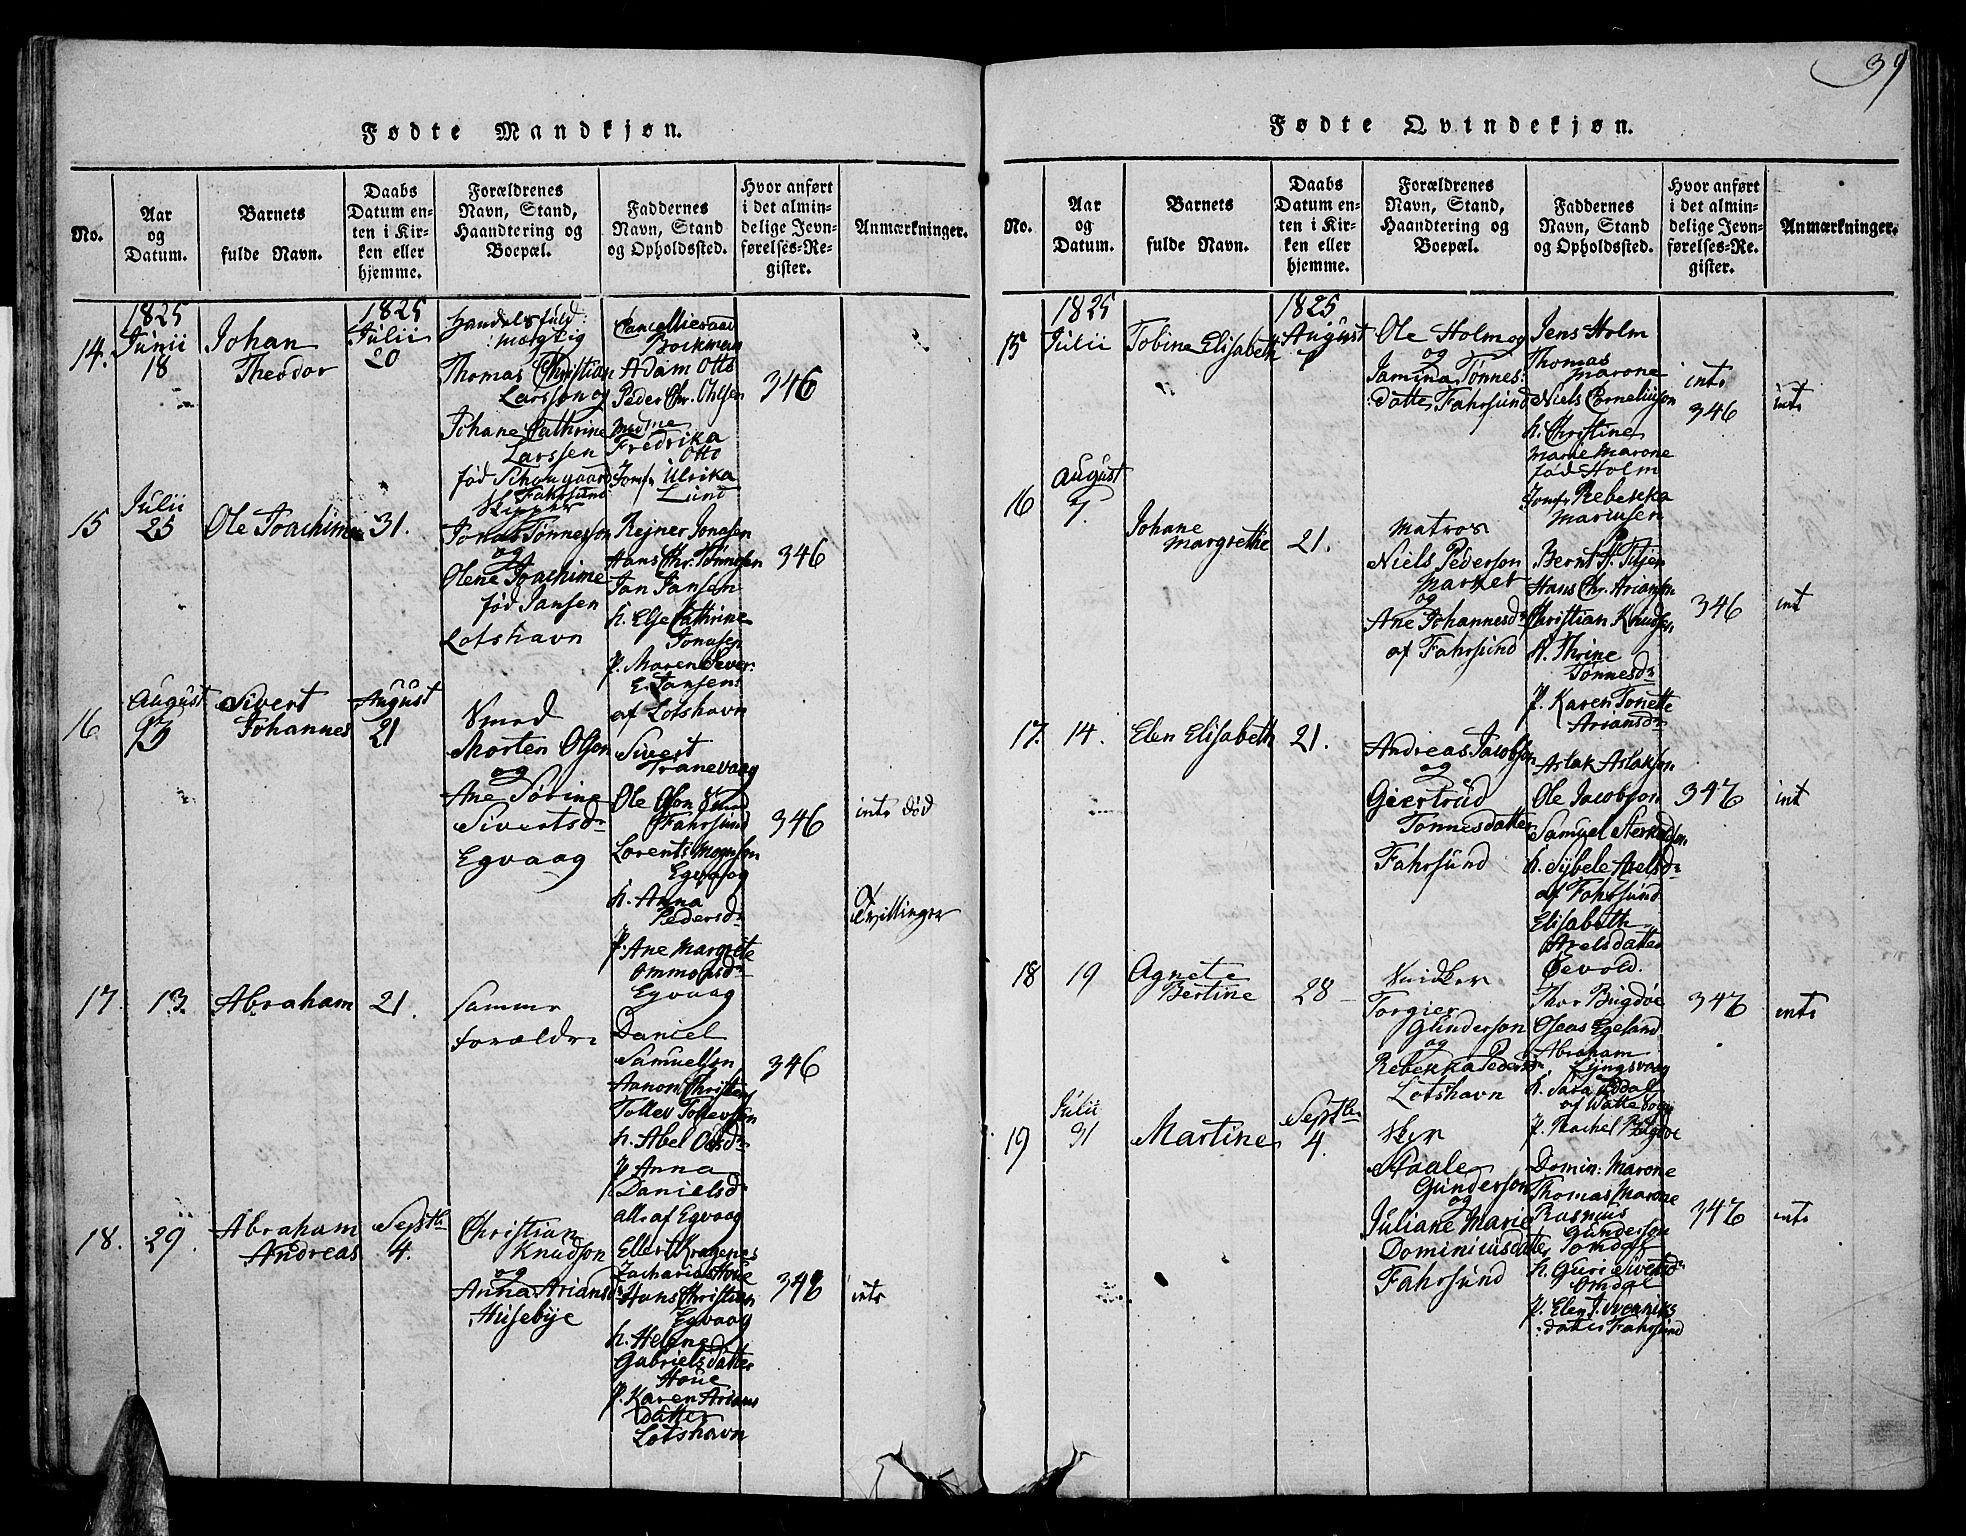 39
Fødte Mandkjøn.
No.
Aar
og
Datum.
Barnets
fulde Navn.
Daabs
Datum en-
ten i Kir-
ken eller
hjemme.
Forældrenes
Navn, Stand,
Haandtering og
Boepæl.
Faddernes
Navn, Stand
og Opholdssted.
Hvor anført
i det almin-
delige Jevn-
førelses-Re-
gister.
Anmærkninger.
14.
1825
Junii
18
Johan
Theodor
1825
Julii
20
Handelsfuld:
:mægtig
Thomas Christian
Larsson og
Johane Cathrine
Larssen
fød Schougaard
Fahrsund
Cancellieraad
Bockman
Adam Otto
Peder Chr. Ohlsen
Madme
Fredrika
Otto
Jomf. Ulrika
Lund
346
15
Julii
25
Ole Joachim
31.
Skipper
Jonas Tønnesson
og
Olene Joachime
fød Jansen
Lotshavn
Rejner Jonasen
Hans Chr. Tønnesen
Jan Jansen
h. Else Cathrine
Jonasen
p. Maren Sever:
E. Jansen
af Lotshavn
346
16
August
13
Sivert
Johannes
August
21
Smed
Morten Olson
og
Ane Sørine
Sivertsdr
Egvaag
Sivert
Tranevaag
Ole Olson Sund
Fahrsund
Lorents Mognson
Egvaag
h. Anna
Pedersdr
p. Ane Margrete
Ommonsdr
Egvaag
346
int. død
Tvillinger
17.
13.
Abraham
21.
Samme
forældre
Daniel
Samuelson
Aanon Christens
Tollev Tollevsen
h. Abel Olsdr
p Anna
Danielsd
all. af Egvaag
346
18.
29.
Abraham
Andreas
Septbr
4.
Christian
Knudson
og
Anna Ariansdr
Husebye
Ellert Kragenes
Zacharias Houe
Hans Christian
Egvaag
h. Helene
Gabrielsdatter
Houe
p. Karen Arians
datter
Lotshavn
346
int.
Fødte Qvindekjøn.
No.
Aar
og
Datum.
Barnets
fulde Navn.
Daabs
Datum en-
ten i Kir-
ken eller
hjemme.
Forældrenes
Navn, Stand,
Haandtering og
Boepæl.
Faddernes
Navn, Stand
og Opholdssted.
Hvor anført
i det almin-
delige Jevn-
førelses-Re-
gister.
Anmærkninger.
15
1825
Julii
Tobine Elisabeth
1825
August
Ole Holm og
og
Jamina Tønnes:
:datter Fahrsund
Jens Holm
Thomas
Marone
Niels Corneliuson
h. Christine
Marie Marone
fød Holm
Jomf. Rebekka
Mariusen
int.
346
int.
16
August
7.
Johane
Margrethe
21.
Matros
Niels Pederson
Marker
og
Ane Johannesdr
af Fahrsund
Bernt A. Titjen
Hans Chr. Arianson
Christian Knudsen
h. Thrine
Tønnesdr
p. Karen Tonette
Ariansdr
346
int
17.
14.
Elen Elisabeth
21.
Andreas Jacobson
og
Giertrud
Tønnesdatter
Fahrsund
Aslak Aslakson
Ole Jacobson
Samuel Sterkodson
h. Sybele Axelsdr
af Fahrsund
Elisabeth
Axelsdatter
Øevold.
346
int
18
19
Agnete
Bertine
28
Snidker
Torgier
Gunderson
og
Rebekka Pedersdr
Lotshavn
Thor Bugdøe
Oseas Egeland
Abraham
Lyngsvaag
p. Rachel Bugdøe
346
int.
19
Julii
31
Martine
Septbr
4.
Sker
Staale
Gunderson
og
Juliane Marie
Dominiusdatter
Fahrsund
Domin: Marone
Thomas Marone
Rasmus
Gunderson
Tomdal
h. Guri Sivertsdr
Omdal
p. Elen
datter Fahrsund
346
int.